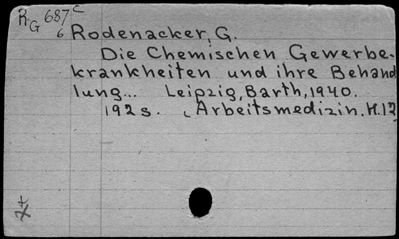 RG 687c
6
Rodenacker, G.
Die Chemischen Gewerbe-
krankheiten und ihre Behand
lung... Leipzig, Barth, 1940.
192 s. (Arbeitsmedizin. H.12